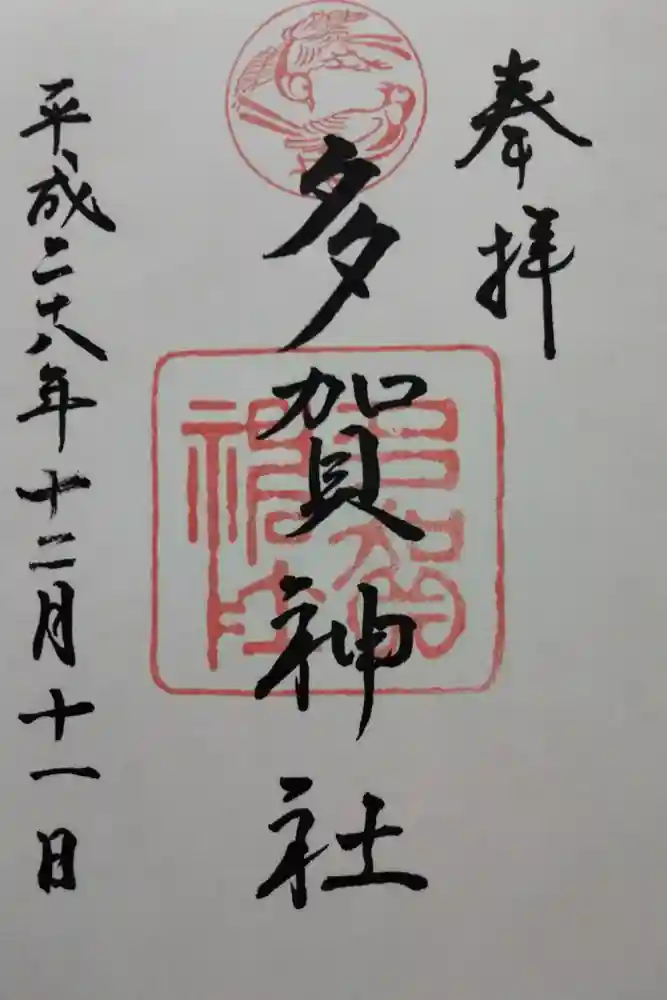 奉拝
多賀神社
平成二十八年十二月十一日